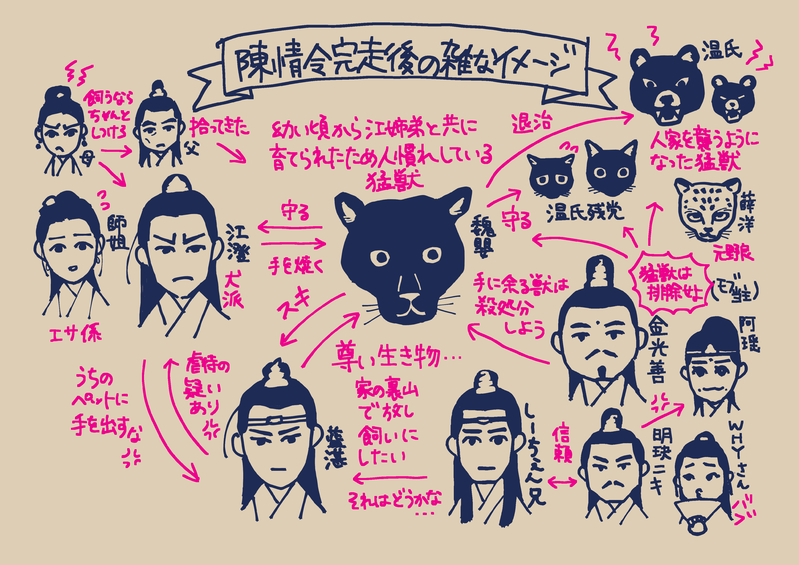 陳情令完走後の雑なイメージ
飼うなら
ちゃんと
しつけろ
母
父
拾ってきた
幼い頃から江姉弟と共に
育てられたため人慣れしている
猛獣
退治
温氏
人家を襲うように
なった猛獣
温氏残党
守る
薛洋
元野良
師姐
エサ係
江澄
犬派
守る
手を焼く
魏嬰
スキ
手に余る獣は
殺処分
しよう
猛獣は
排除せよ
(モブ当主)
金光善
阿瑶
尊い生き物…
うちの
ペットに
手を出すな
虐待の
疑い
あり
藍湛
家の裏山
で放し
飼いに
したい
それはどうかな
…
しーちぇん兄
信頼
明玦ニキ
WHYさん
バ